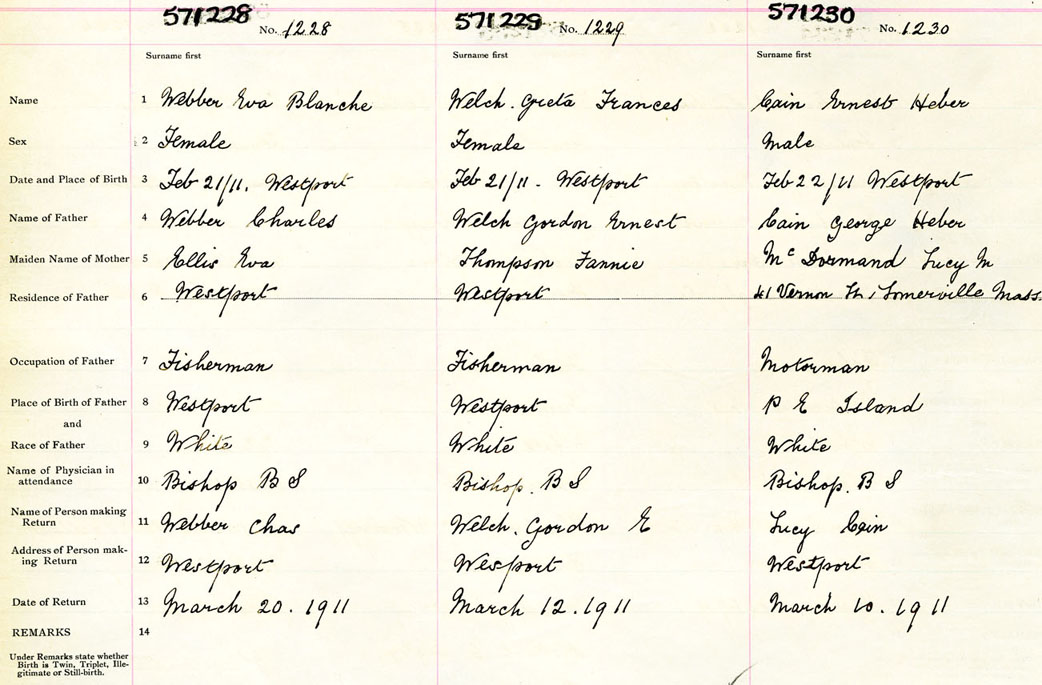 571228 No. 1228 571229 No. 1229 571230 No. 1230
Surname first Surname first Surname first
Name 1 Webber Eva Blanche Welch. Greta Frances Cain Ernest Heber
Sex 2 Female Female Male
Date and Place of Birth 3 Feb 21/11. Westport Feb 21/11 - Westport Feb 22/11 Westport
Name of Father 4 Webber Charles Welch Gordon Ernest Cain George Heber
Maiden Name of Mother 5 Ellis Eva Thompson Fannie Mc Dormand Lucy M
Residence of Father 6 Westport Westport 41 Vernon St, Somerville Mass.
Occupation of Father 7 Fisherman Fisherman Motorman
Place of Birth of Father 8 Westport Westport P E Island
and
Race of Father 9 White White White
Name of Physician in
attendance 10 Bishop B S Bishop. B S Bishop. B S
Name of Person making
Return 11 Webber Chas Welch. Gordon E Lucy Cain
Address of Person mak-
ing Return 12 Westport Wesport Westport
Date of Return 13 March 20. 1911 March 12. 1911 March 10. 1911
REMARKS 14
Under Remarks state whether
Birth is Twin, Triplet, Ille-
gitimate or Still-birth.